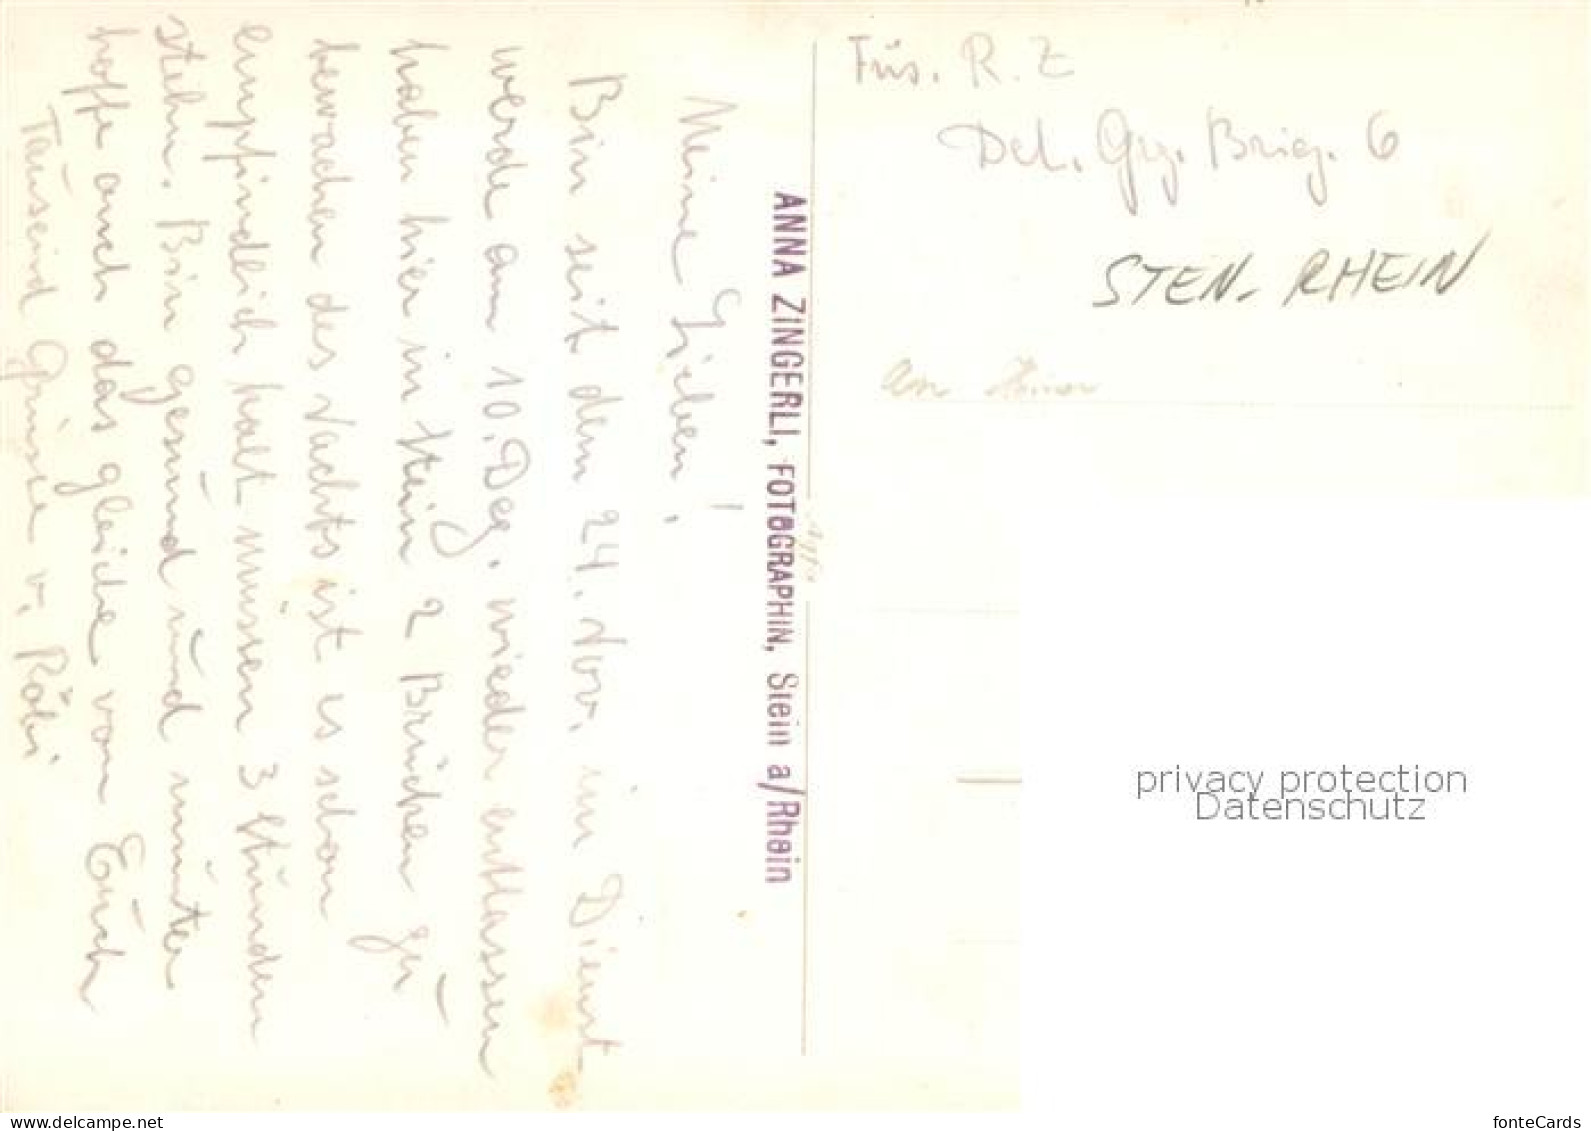 Meine Lieben!
Bin seit dem 24. Nov. im Dienst
werde am 10. Dez. wieder entlassen
haben hier in Stein 2 Brücken zu
bewachen des Nachts ist es schon
empfindlich kalt müssen 3 Stunden
stehn. Bin gesund und munter
hoffe auch das gleiche von Euch
Tausend Grüsse v. Röbi
ANNA ZINGERLI, FOTOGRAPHIN, Stein a/Rhein
Füs. R. Z
Det. Grz. Brig. 6
STEN. RHEIN
privacy protection
Datenschutz
www.delcampe.net
fonteCards